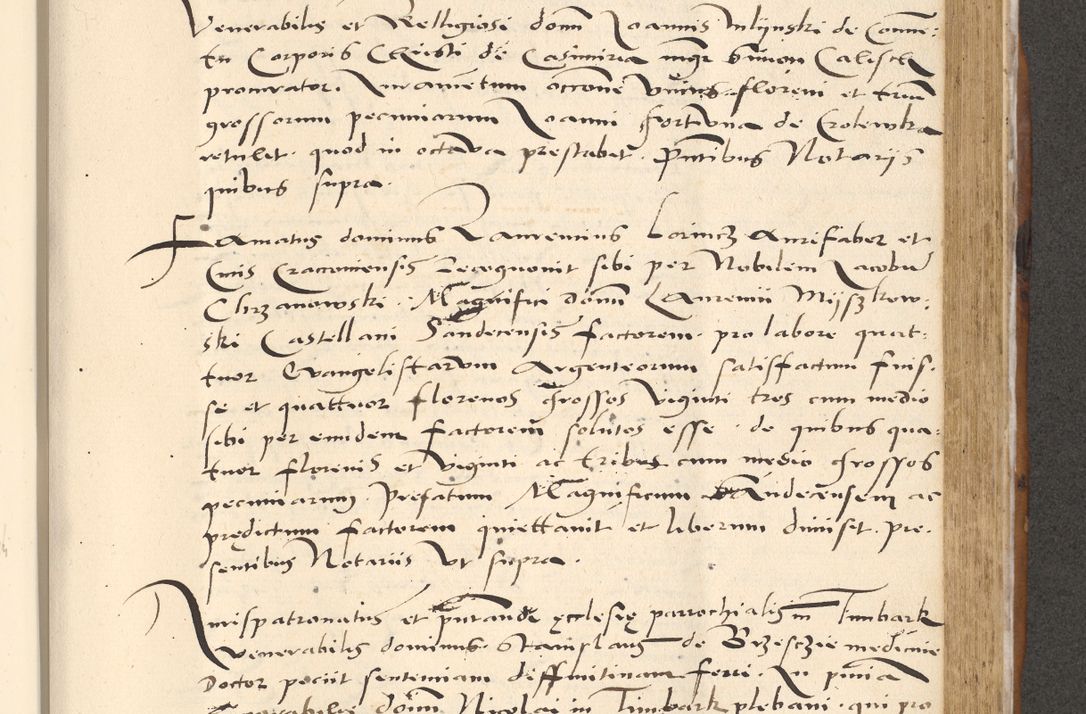 Venerabilis et Relligiosi domi Joannis Mlynski de Conne-
tu Corporis Christi de Casimiria mgr Simon Calisch
procurator. Juramentum occone unius floreni et trium
grossorum pecuniarum Joanni Fortuna de Crolewka
retulit. quod in octava prestabit. Pntibus Notarijs
quibus supra.
Famatus dominus Laurentius Lorincz Aurifaber et
Civis Cracoviensis Recognovit sibi per Nobilem Jacobum
Chrzanowski. Magnifici Domi Laurentii Myszkow-
ski Castellani Sandecensis factorem. pro labore quat-
tuor Evangelistarum Argenteorum satisfactum fuis-
se et quattuor florenos grossos viginti tres cum medio
sibi per eundem factorem solutos esse. de quibus qua-
tuor florenis et viginti ac tribus cum medio grossos
pecuniarum. Prefatum Magnificum Sandecensem ac
predictum factorem quiettavit et liberum dimisit. pre-
sentibus Notariis ut supra.
Jurispatronatus et putande ecclesię parrochialis in Timbark
Venerabilis dominus Stanislaus de Brzesczie medicinę
Doctor peciit sententiam deffinitivam ferri. In pntia
Venerabilis domi Nicolai in Timbark plebani. qui pro